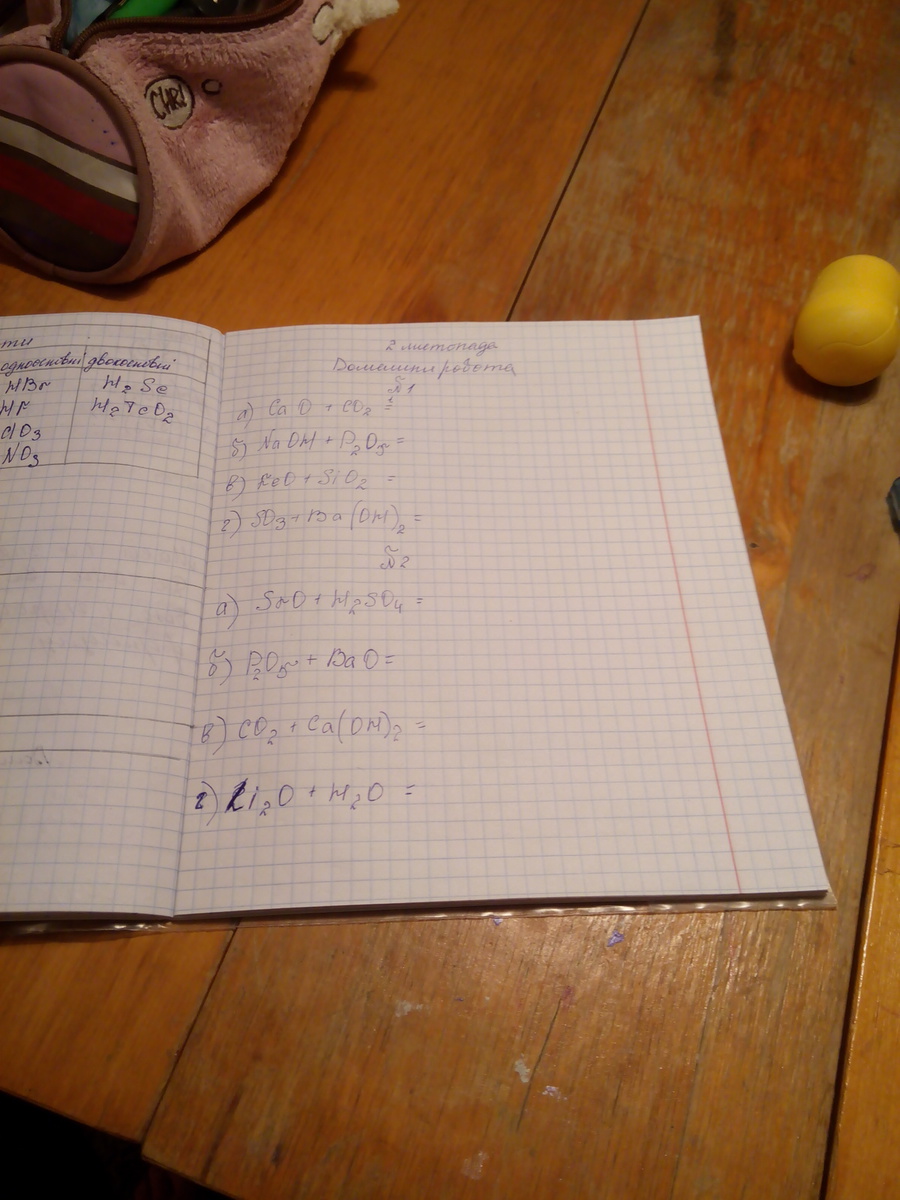 CHRI
ти
одноосновні двохосновні
HBr H₂Se
HF H₂TeO₂
ClO₃
NO₃
2 листопада
Домашня робота
№1
а) CaO + CO₂ =
б) NaOH + P₂O₅ =
в) FeO + SiO₂ =
г) SO₃ + Ba(OH)₂ =
№2
а) SrO + H₂SO₄ =
б) P₂O₅ + BaO =
в) CO₂ + Ca(OH)₂ =
г) Li₂O + H₂O =